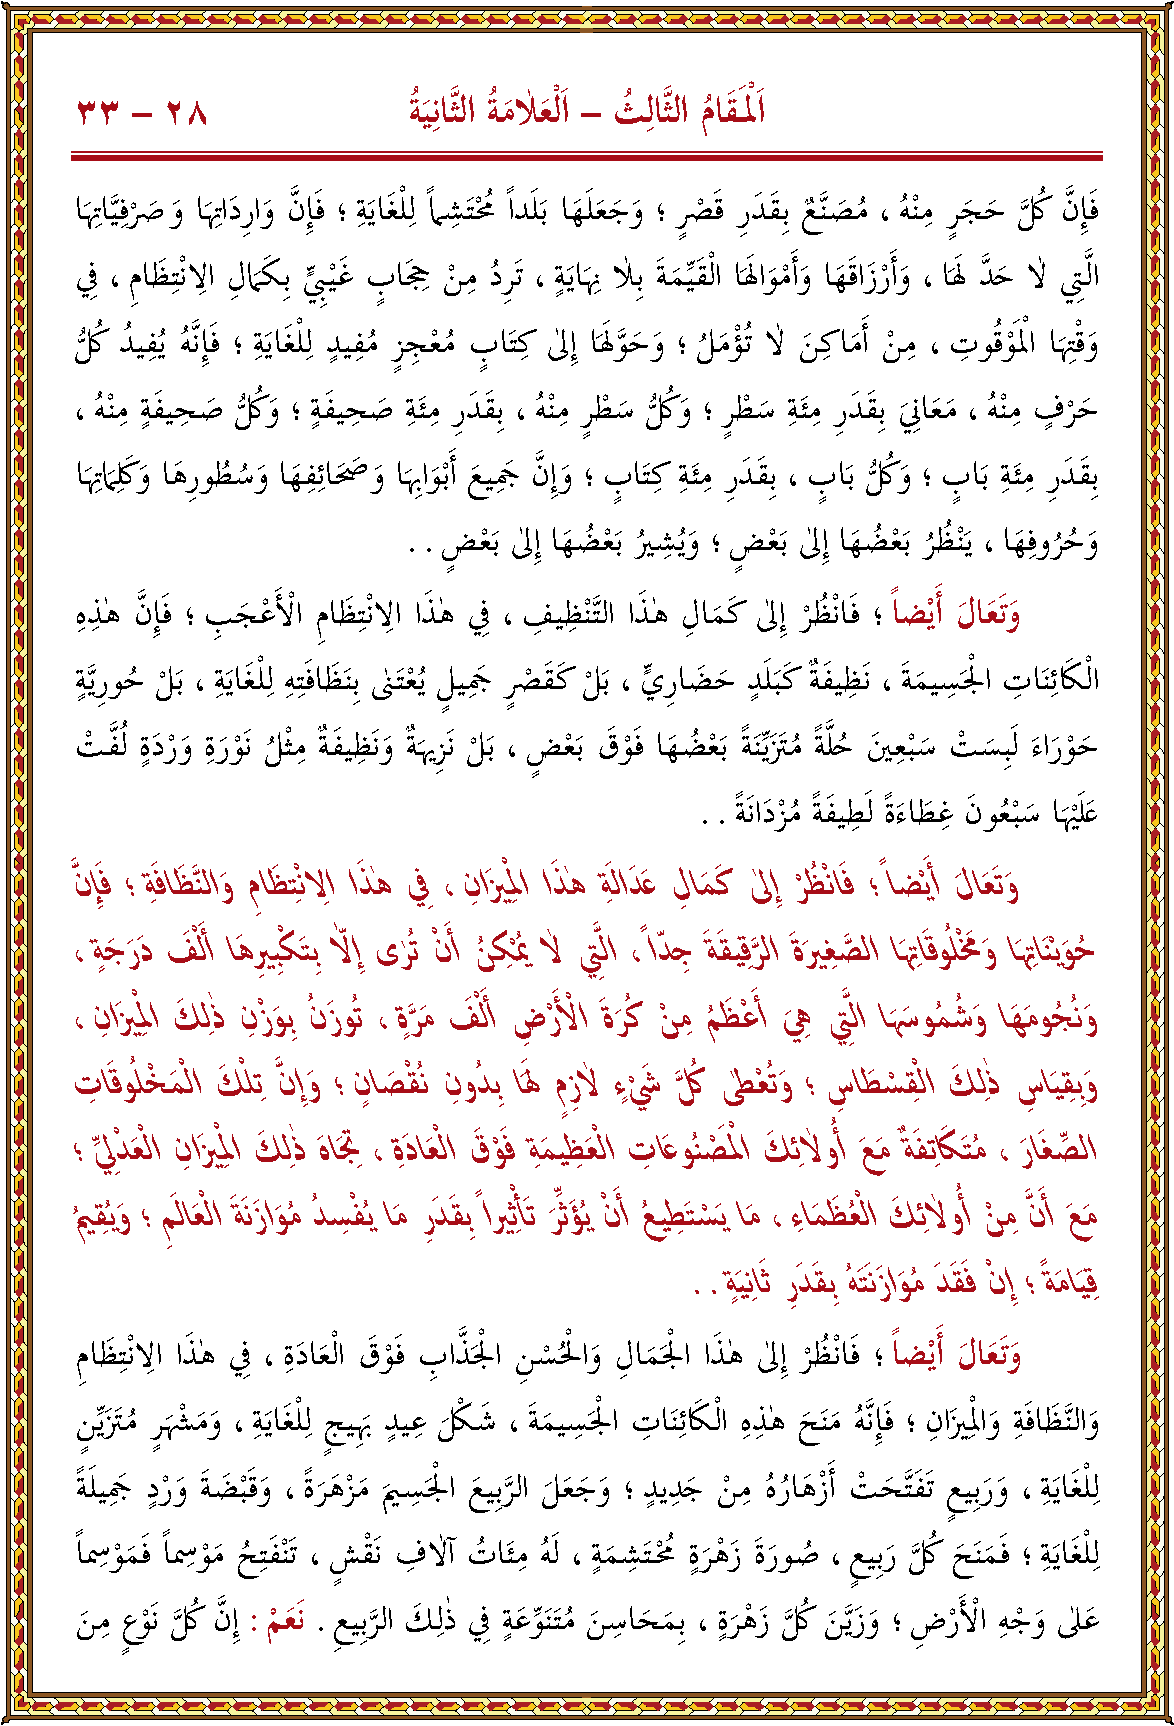 اَلْمَقَامُ الثَّالِثُ – اَلْعَلاٰمَةُ الثَّانِيَةُ ٢٨ – ٣٣
فَإِنَّ كُلَّ حَجَرٍ مِنْهُ ، مُصَنَّعٌ بِقَدَرِ قَصْرٍ ؛ وَجَعَلَهَا بَلَداً مُحْتَشِماً لِلْغَايَةِ ؛ فَإِنَّ وَارِدَاتِهَا وَ صَرْفِيَّاتِهَا
الَّتِي لاٰ حَدَّ لَهَا ، وَأَرْزَاقَهَا وَأَمْوَالَهَا الْقَيِّمَةَ بِلاٰ نِهَايَةٍ ، تَرِدُ مِنْ حِجَابٍ غَيْبِيٍّ بِكَمَالِ الاِنْتِظَامِ ، فِي
وَقْتِهَا الْمَوْقُوتِ ، مِنْ أَمَاكِنَ لاٰ تُؤْمَلُ ؛ وَحَوَّلَهَا إِلىٰ كِتَابٍ مُعْجِزٍ مُفِيدٍ لِلْغَايَةِ ؛ فَإِنَّهُ يُفِيدُ كُلُّ
حَرْفٍ مِنْهُ ، مَعَانِيَ بِقَدَرِ مِئَةِ سَطْرٍ ؛ وَكُلُّ سَطْرٍ مِنْهُ ، بِقَدَرِ مِئَةِ صَحِيفَةٍ ؛ وَكُلُّ صَحِيفَةٍ مِنْهُ ،
بِقَدَرِ مِئَةِ بَابٍ ؛ وَكُلُّ بَابٍ ، بِقَدَرِ مِئَةِ كِتَابٍ ؛ وَإِنَّ جَمِيعَ أَبْوَابِهَا وَ صَحَائِفِهَا وَسُطُورِهَا وَكَلِمَاتِهَا
وَحُرُوفِهَا ، يَنْظُرُ بَعْضُهَا إِلىٰ بَعْضٍ ؛ وَيُشِيرُ بَعْضُهَا إِلىٰ بَعْضٍ . .
وَتَعَالَ أَيْضاً ؛ فَانْظُرْ إِلىٰ كَمَالِ هٰذَا التَّنْظِيفِ ، فِي هٰذَا الاِنْتِظَامِ الْأَعْجَبِ ؛ فَإِنَّ هٰذِهِ
الْكَائِنَاتِ الْجَسِيمَةَ ، نَظِيفَةٌ كَبَلَدٍ حَضَارِيٍّ ، بَلْ كَقَصْرٍ جَمِيلٍ يُعْتَنىٰ بِنَظَافَتِهِ لِلْغَايَةِ ، بَلْ حُورِيَّةٍ
حَوْرَاءَ لَبِسَتْ سَبْعِينَ حُلَّةً مُتَزَيِّنَةً بَعْضُهَا فَوْقَ بَعْضٍ ، بَلْ نَزِيهَةٌ وَنَظِيفَةٌ مِثْلُ نَوْرَةِ وَرْدَةٍ لُفَّتْ
عَلَيْهَا سَبْعُونَ غِطَاءَةً لَطِيفَةً مُزْدَانَةً . .
وَتَعَالَ أَيْضاً ؛ فَانْظُرْ إِلىٰ كَمَالِ عَدَالَةِ هٰذَا الْمِيْزَانِ ، فِي هٰذَا الاِنْتِظَامِ وَالنَّظَافَةِ ؛ فَإِنَّ
حُوَيْنَاتِهَا وَمَخْلُوقَاتِهَا الصَّغِيرَةَ الرَّقِيقَةَ جِدّاً ، الَّتِي لاٰ يُمْكِنُ أَنْ تُرٰى إِلاّٰ بِتَكْبِيرِهَا أَلْفَ دَرَجَةٍ ،
وَنُجُومُهَا وَشُمُوسُهَا الَّتِي هِيَ أَعْظَمُ مِنْ كُرَةِ الْأَرْضِ أَلْفَ مَرَّةٍ ، تُوزَنُ بِوَزْنِ ذٰلِكَ الْمِيْزَانِ ،
وَبِقِيَاسِ ذٰلِكَ الْقِسْطَاسِ ؛ وَتُعْطىٰ كُلَّ شَيْءٍ لاٰزِمٍ لَهَا بِدُونِ نُقْصَانٍ ؛ وَإِنَّ تِلْكَ الْمَخْلُوقَاتِ
الصِّغَارَ ، مُتَكَاتِفَةٌ مَعَ أُولاٰئِكَ الْمَصْنُوعَاتِ الْعَظِيمَةِ فَوْقَ الْعَادَةِ ، تِجَاهَ ذٰلِكَ الْمِيْزَانِ الْعَدْلِيِّ ؛
مَعَ أَنَّ مِنْ أُولاٰئِكَ الْعُظَمَاءِ ، مَا يَسْتَطِيعُ أَنْ يُؤَثِّرَ تَأْثِيْراً بِقَدَرِ مَا يُفْسِدُ مُوَازَنَةَ الْعَالَمِ ؛ وَيُقِيمُ
قِيَامَةً ؛ إِنْ فَقَدَ مُوَازَنَتَهُ بِقَدَرِ ثَانِيَةٍ . .
وَتَعَالَ أَيْضاً ؛ فَانْظُرْ إِلىٰ هٰذَا الْجَمَالِ وَالْحُسْنِ الْجَذَّابِ فَوْقَ الْعَادَةِ ، فِي هٰذَا الاِنْتِظَامِ
وَالنَّظَافَةِ وَالْمِيْزَانِ ؛ فَإِنَّهُ مَنَحَ هٰذِهِ الْكَائِنَاتِ الْجَسِيمَةَ ، شَكْلَ عِيدٍ بَهِيجٍ لِلْغَايَةِ ، وَمَشْهَرٍ مُتَزَيِّنٍ
لِلْغَايَةِ ، وَرَبِيعٍ تَفَتَّحَتْ أَزْهَارُهُ مِنْ جَدِيدٍ ؛ وَجَعَلَ الرَّبِيعَ الْجَسِيمَ مَزْهَرَةً ، وَقَبْضَةَ وَرْدٍ جَمِيلَةً
لِلْغَايَةِ ؛ فَمَنَحَ كُلَّ رَبِيعٍ ، صُورَةَ زَهْرَةٍ مُحْتَشِمَةٍ ، لَهُ مِئَاتُ آلاٰفِ نَقْشٍ ، تَنْفَتِحُ مَوْسِماً فَمَوْسِماً
عَلىٰ وَجْهِ الْأَرْضِ ؛ وَزَيَّنَ كُلَّ زَهْرَةٍ ، بِمَحَاسِنَ مُتَنَوِّعَةٍ فِي ذٰلِكَ الرَّبِيعِ . نَعَمْ : إِنَّ كُلَّ نَوْعٍ مِنَ